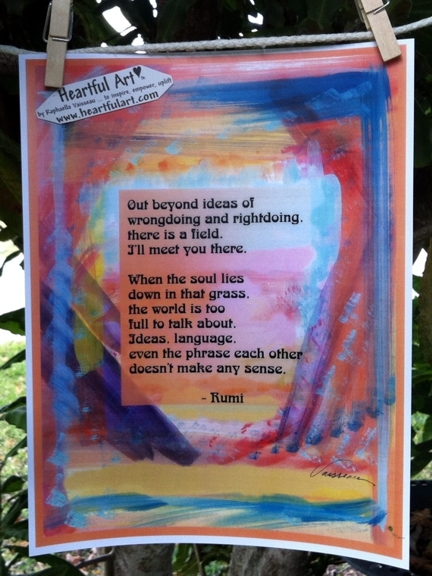 Heartful Art
by Raphaella Vaisseau ... to inspire, empower, uplift
www.heartfulart.com
Out beyond ideas of
wrongdoing and rightdoing,
there is a field.
I'll meet you there.
When the soul lies
down in that grass,
the world is too
full to talk about.
Ideas, language,
even the phrase each other
doesn't make any sense.
- Rumi
Vaisseau